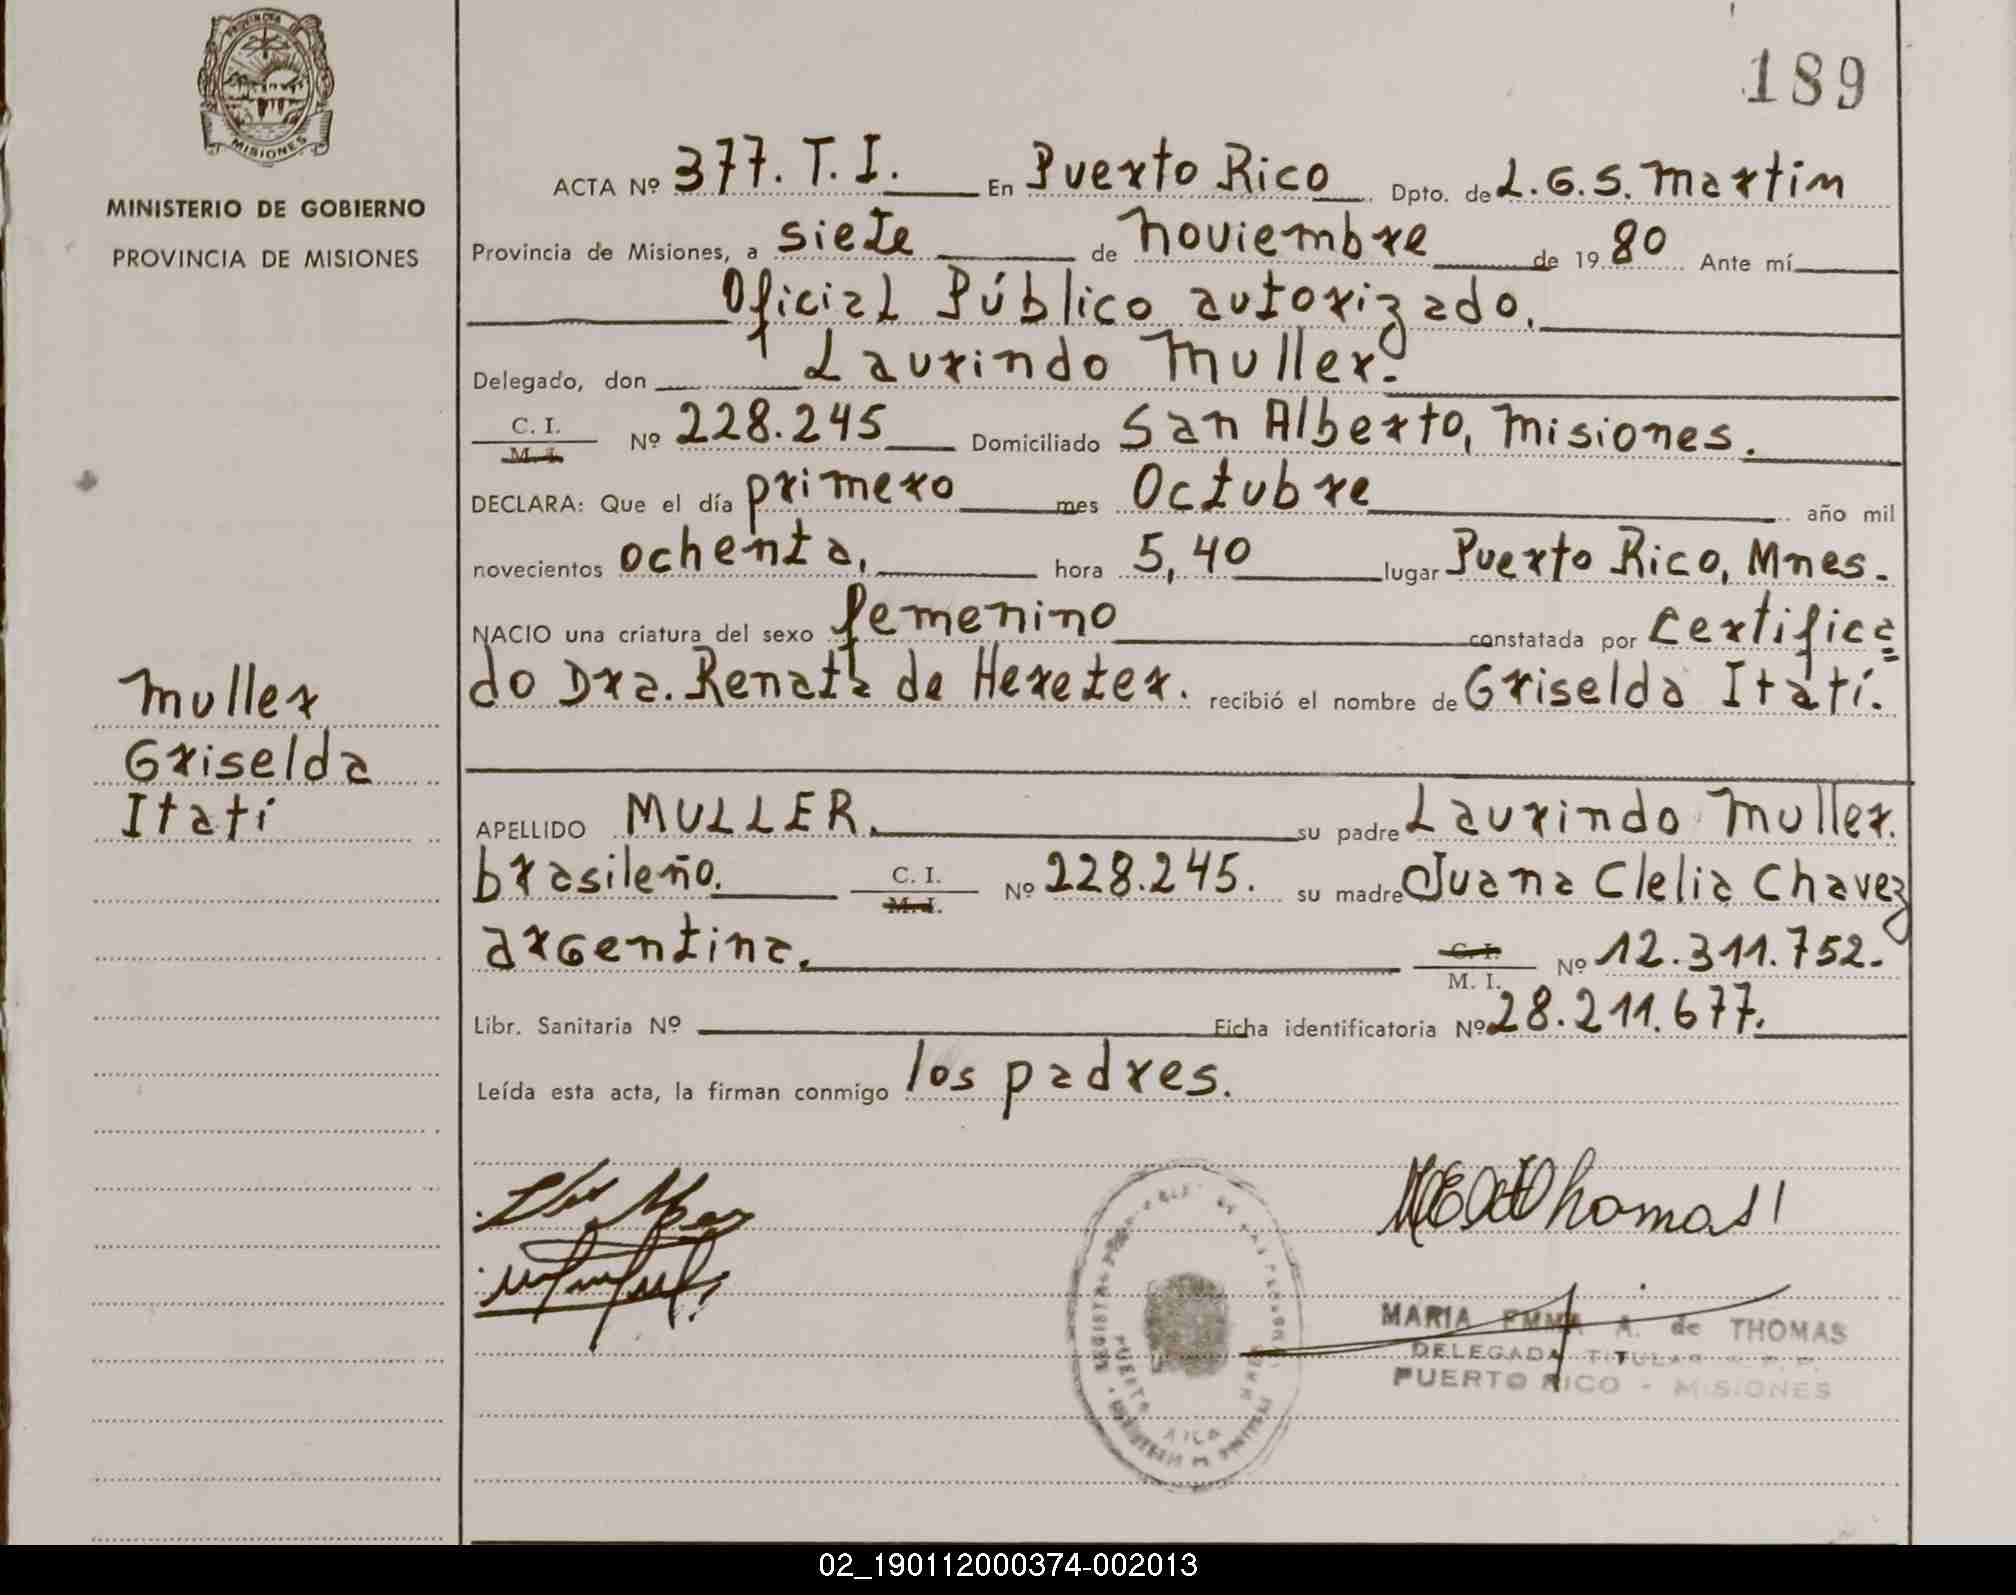 189
MISIONES
MINISTERIO DE GOBIERNO
PROVINCIA DE MISIONES
ACTA Nº 377. T. I. En Puerto Rico Dpto. de L. G. S. Martin
Provincia de Misiones, a siete de noviembre de 1980 Ante mí
Oficial Público autorizado.
Delegado, don Laurindo Muller.
C. I.
M. I. Nº 228.245 Domiciliado San Alberto, Misiones.
DECLARA: Que el día primero mes Octubre año mil
novecientos ochenta, hora 5,40 lugar Puerto Rico, Mnes.
NACIO una criatura del sexo femenino constatada por Certifica
do Dra. Renata de Hereter. recibió el nombre de Griselda Itatí.
Muller
Griselda
Itatí
APELLIDO MULLER. su padre Laurindo Muller.
brasileño. C. I. Nº 228.245. su madre Juana Clelia Chavez
M. I.
argentina. C. I. Nº 12.311.752.
M. I.
Libr. Sanitaria Nº Ficha identificatoria Nº 28.211.677.
Leída esta acta, la firman conmigo los padres.
Thomas
MARIA EMMA A. de THOMAS
DELEGADA TITULAR
PUERTO RICO - MISIONES
02_190112000374-002013